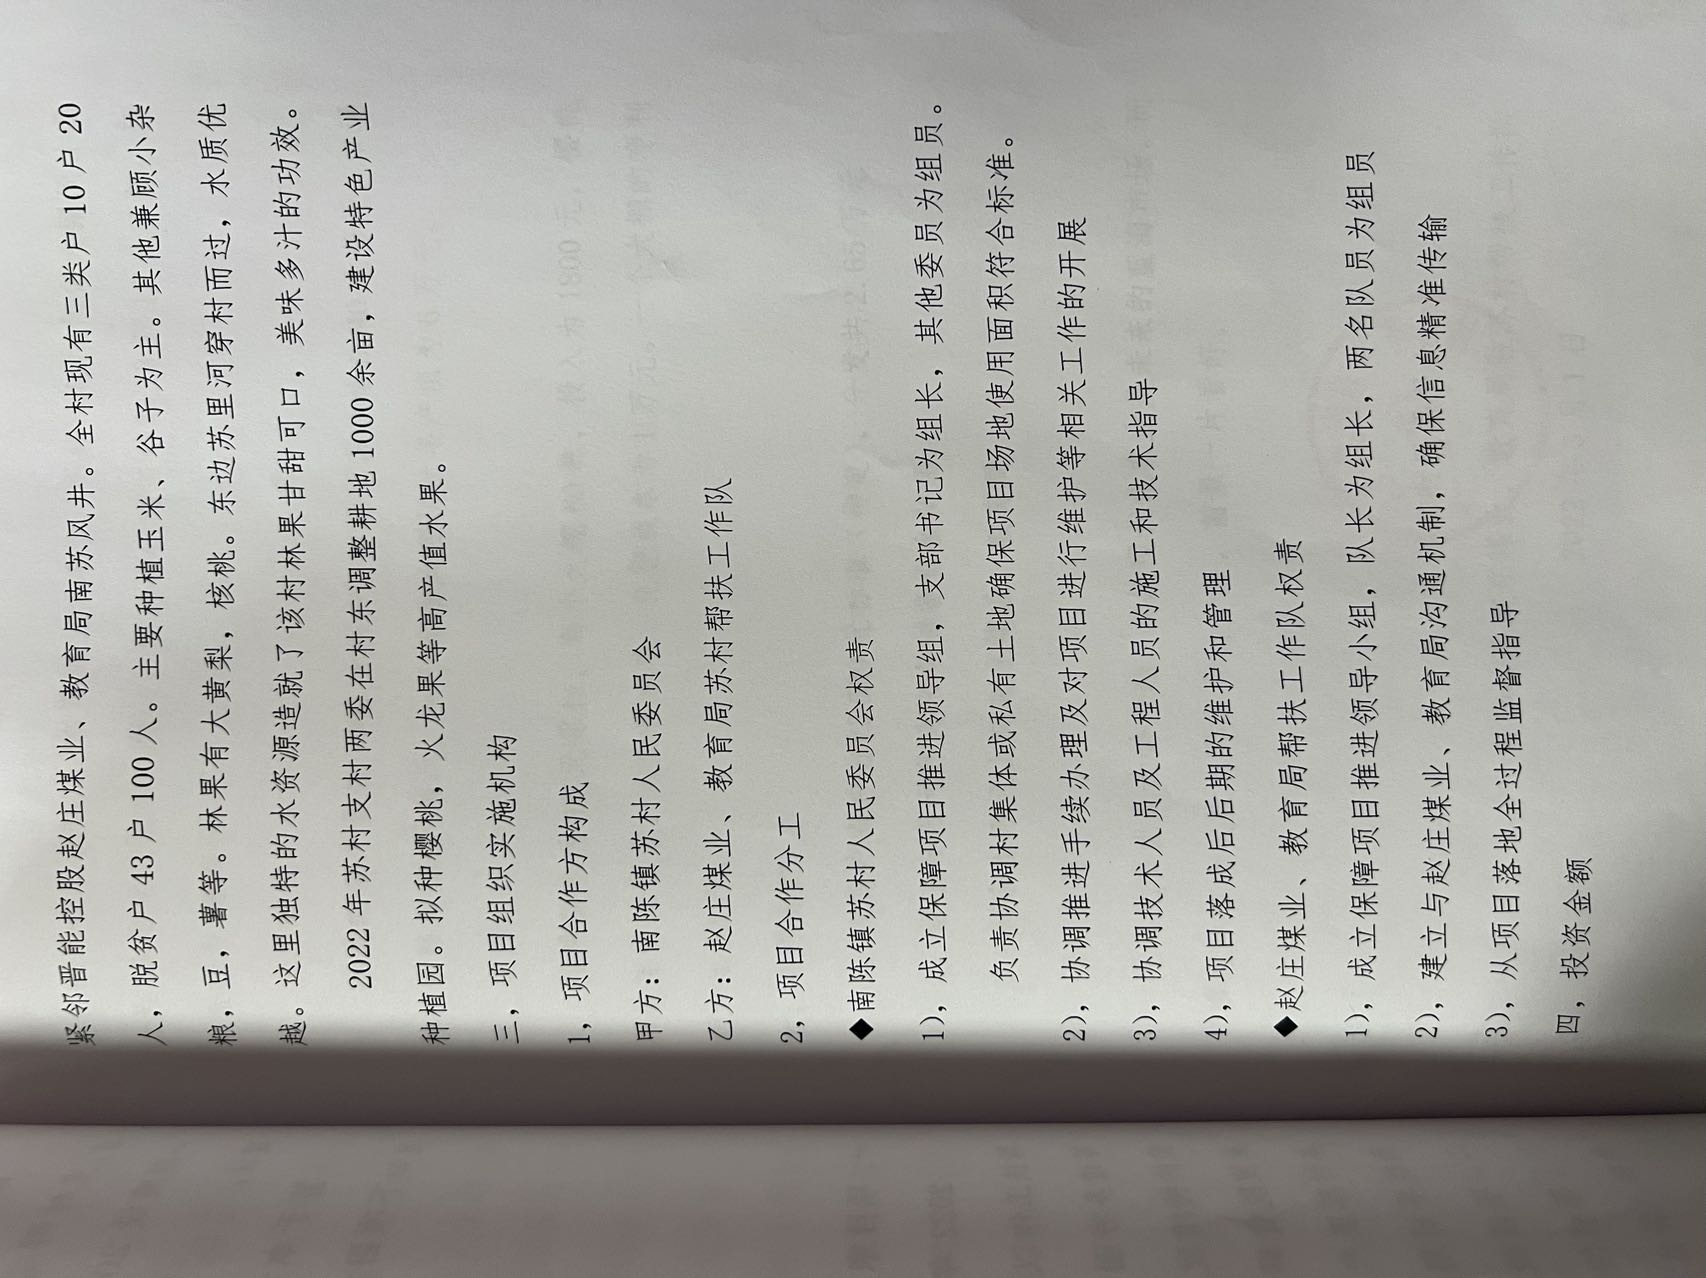 紧邻晋能控股赵庄煤业、教育局南苏风井。全村现有三类户 10 户 20
人，脱贫户 43 户 100 人。主要种植玉米、谷子为主。其他兼顾小杂
粮，豆，薯等。林果有大黄梨，核桃。东边苏里河穿村而过，水质优
越。这里独特的水资源造就了该村林果甘甜可口，美味多汁的功效。
2022 年苏村支村两委在村东调整耕地 1000 余亩，建设特色产业
种植园。拟种樱桃，火龙果等高产值水果。
三，项目组织实施机构
1，项目合作方构成
甲方：南陈镇苏村人民委员会
乙方：赵庄煤业、教育局苏村帮扶工作队
2，项目合作分工
◆南陈镇苏村人民委员会权责
1），成立保障项目推进领导组，支部书记为组长，其他委员为组员。
负责协调村集体或私有土地确保项目场地使用面积符合标准。
2），协调推进手续办理及对项目进行维护等相关工作的开展
3），协调技术人员及工程人员的施工和技术指导
4），项目落成后后期的维护和管理
◆赵庄煤业、教育局帮扶工作队权责
1），成立保障项目推进领导小组，队长为组长，两名队员为组员
2），建立与赵庄煤业、教育局沟通机制，确保信息精准传输
3），从项目落地全过程监督指导
四，投资金额